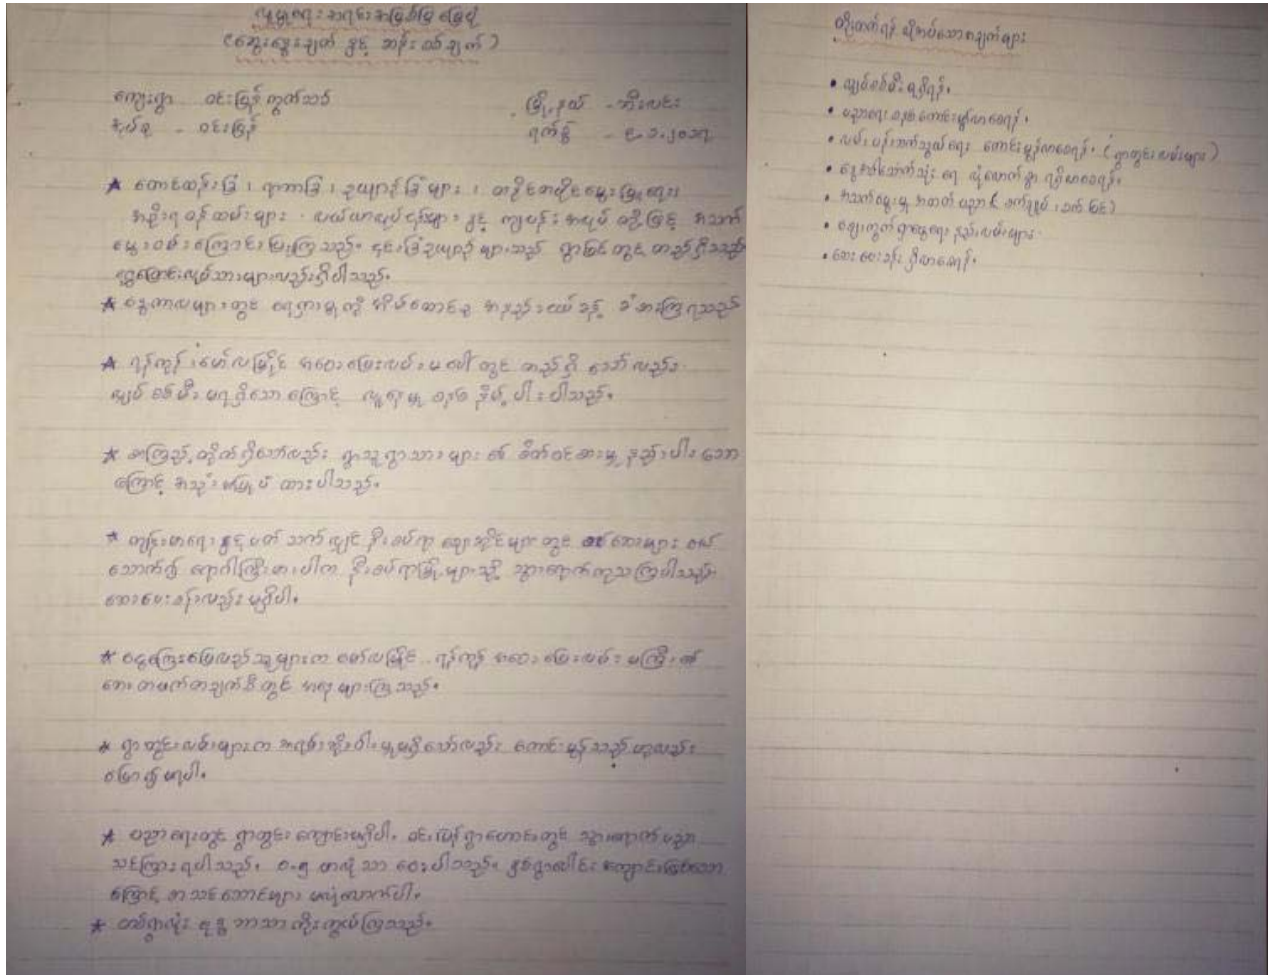 လူမှုရေး အရင်းအမြစ်ပြ မြေပုံ
(ဆွေးနွေးချက် နှင့် ဆန်းစစ်ချက်)
ကျေးရွာ - ဝင်းပြန် ကွက်သစ်
မြို့နယ် - ဘီးလင်း
အုပ်စု - ဝင်းပြန်
ရက်စွဲ - ၉.၁.၂၀၁၇
* တောင်ထွန်းခြံ၊ ရာဘာခြံ၊ ဥယျာဉ်ခြံများ၊ တနိုင်တပိုင်မွေးမြူရေး၊
အစိုးရဝန်ထမ်းများ၊ လယ်ယာလုပ်ငန်းများ နှင့် ကျပန်းအလုပ် တို့ဖြင့် အသက်
မွေးဝမ်းကြောင်းပြုကြသည်။ ၎င်းခြံဥယျာဉ်များသည် ရွာပြင်တွင် တည်ရှိသည်
ရွှေ့ပြောင်းလုပ်သားများလည်းရှိပါသည်။
* နွေကာလများတွင် ရေရှားမှုကို အိမ်ထောင်စု အနည်းငယ်ခန့် ခံစားကြရသည်
* ရန်ကုန် ၊ မော်လမြိုင် အဝေးပြေးလမ်းမပေါ်တွင် တည်ရှိ သော်လည်း
လျှပ်စစ်မီး မရရှိသောကြောင့် လူနေမှု စနစ် နိမ့်ပါးပါသည်။
* စာကြည့်တိုက်ရှိသော်လည်း ရွာသူရွာသားများ ၏ စိတ်ဝင်စားမှု နည်းပါးသော
ကြောင့် အသုံးမပြုပဲ ထားပါသည်။
* ကျန်းမာရေးနှင့်ပတ်သက်လျှင် နီးစပ်ရာ ဈေးဆိုင်များတွင် ဆေးများ ဝယ်
သောက်၍ ရောဂါကြီးမားပါက နီးစပ်ရာမြို့များသို့ သွားရောက်ကုသကြပါသည်။
ဆေးပေးခန်းလည်းမရှိပါ။
* ငွေကြေးပြေလည်သူများက မော်လမြိုင် - ရန်ကုန် အဝေးပြေးလမ်းမကြီး၏
ဘေးတဖက်တချက်စီတွင် နေများကြသည်။
* ရွာတွင်းလမ်းများက အရမ်းဆိုးဝါးမှုမရှိသော်လည်း ကောင်းမွန်သည်ဟုလည်း
မပြော၍မရပါ။
* ပညာရေးတွင် ရွာတွင်းကျောင်းမရှိပါ။ ဝင်းပြန်ရွာဟောင်းတွင် သွားရောက်ပညာ
သင်ကြားရပါသည်။ ၀-၅ ထိသာ ပေးပါသည်။ နှစ်ရွာပေါင်း ကျောင်းဖြစ်သော
ကြောင့် စာသင်ဆောင်များ မလုံလောက်ပါ။
* တစ်ရွာလုံး ဗုဒ္ဓဘာသာ ကိုးကွယ်ကြသည်။
တိုးတက်ရန် လိုအပ်သောအချက်များ
• လျှပ်စစ်မီးရရှိရန်။
• ပညာရေးစနစ်ကောင်းမွန်လာစေရန်။
• လမ်းပန်းဆက်သွယ်ရေး ကောင်းမွန်လာစေရန်။ (ရွာတွင်းလမ်းများ)
• နွေအခါသောက်သုံးရေ လုံလောက်စွာ ရရှိလာစေရန်။
• အသက်မွေးမှု အတတ်ပညာ (စက်ချုပ်၊ စက်ပြင်)
• ဈေးကွက်ရှာဖွေရေး နည်းလမ်းများ
• ဆေးပေးခန်း ရှိလာစေရန်။